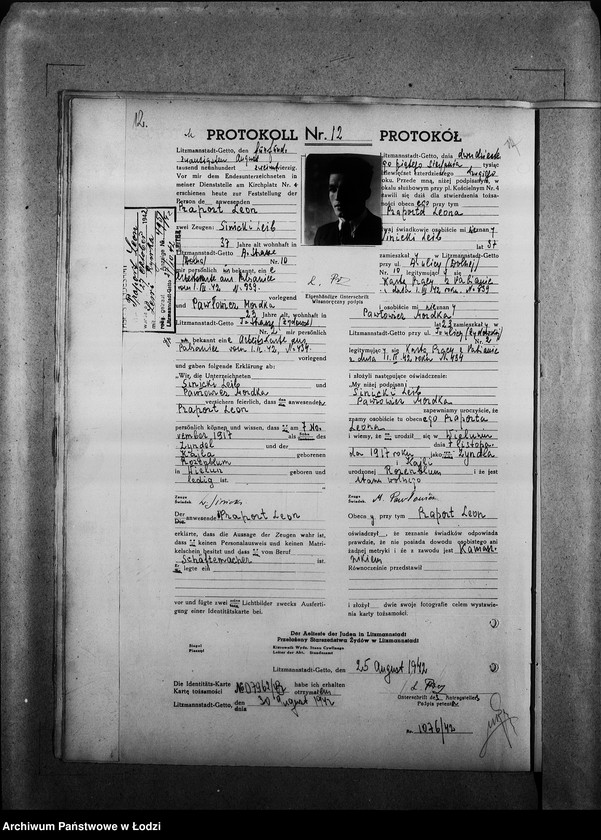 12.
PROTOKOLL Nr. 12 PROTOKÓŁ
Litzmannstadt-Getto, den fünfund-
zwanzigsten August
tausend neunhundert zweiundvierzig.
Vor mir dem Endesunterzeichneten in
meiner Dienststelle am Kirchplatz Nr. 4
erschienen heute zur Feststellung der
Person de anwesenden
Raport Leon
zwei Zeugen: Sinicki Leib
37 Jahre alt wohnhaft in
Litzmannstadt-Getto
Nr. 10
mir persönlich bekannt, ein e
Arbeitskarte aus Pabianice
vom 1.III.42, N. 939.
vorlegend
und Pawłowicz Mordka
23 Jahre alt, wohnhaft in
Litzmannstadt-Getto
Nr. 2, mir persönlich
bekannt ein e Arbeitskarte aus
Pabianice vom 1.II.42, N. 434.
vorlegend
und gaben folgende Erklärung ab:
„Wir, die Unterzeichneten
Sinicki Leib und
Pawłowicz Mordka
versichern feierlich, dass anwesenden
Raport Leon
persönlich kennen und wissen, dass am 7 No-
vember 1917 als des
Zyndel und der
Kajla geborenen
Rozenblum
in Wieluń geboren und
ledig ist.
Zeuge
Świadek
Der anwesende Raport Leon
erklärte, dass die Aussage der Zeugen wahr ist,
dass keinen Personalausweis und keinen Matri-
kelschein besitzt und dass vom Beruf
Schäftemacher ist.
legte ein
vor und fügte zwei Lichtbilder zwecks Ausferti-
gung einer Identitätskarte bei.
Litzmannstadt-Getto, dnia dwudzieste-
go piątego sierpnia, tysiąc
dziewięćset czterdziestego drugiego
roku. Przede mną, niżej podpisanym, w
lokalu służbowym przy pl. Kościelnym Nr. 4
stawili się dziś dla stwierdzenia tożsa-
mości obecnego przy tym
Raporta Leona
Sinicki Leib
lat 37
zamieszkały w Litzmannstadt-Getto
przy ul.
Nr. 10 legitymujący się
Kartą Pracy z Pabianic
z dnia 1.III.42 roku, N. 939
i osobiście mi nieznany
Pawłowicz Mordka
lat 23 zamieszkały w
Litzmannstadt-Getto przy ul.
Nr. 2
legitymujący się Kartą Pracy z Pabianic
z dnia 11.II.42 roku N. 434
i złożyli następujące oświadczenie:
„My niżej podpisani
Sinicki Leib i
Pawłowicz Mordka
zapewniamy uroczyście, że
znamy osobiście tu obecnego Raporta
Leona
i wiemy, że urodził się w Wieluniu
7 listopa-
da 1917 roku jako Zyndla
i Kajli
urodzonej Rozenblum i że jest
stanu wolnego
Zeuge
Świadek M. Pawłowicz
Obecny przy tym Raport Leon
oświadczył, że zeznanie świadków odpowiada
prawdzie, że nie posiada dowodu osobistego ani
żadnej metryki i że z zawodu jest Kamasz-
nikiem
Równocześnie przedstawił
i złożył dwie swoje fotografie celem wystawie-
nia karty tożsamości.
Eigenhändige Unterschrift
Własnoręczny podpis
Der Aelteste der Juden in Litzmannstadt
Przełożony Starszeństwa Żydów w Litzmannstadt
Siegel
Pieczęć
Litzmannstadt-Getto, den 25 August 1942
Die Identitäts-Karte
Kartę tożsamości
habe ich erhalten
otrzymałem
Litzmannstadt-Getto, den
dnia
30 August 1942
Unterschrift des Antragstellers
Podpis petenta
Nr. 1076/42
Archiwum Państwowe w Łodzi